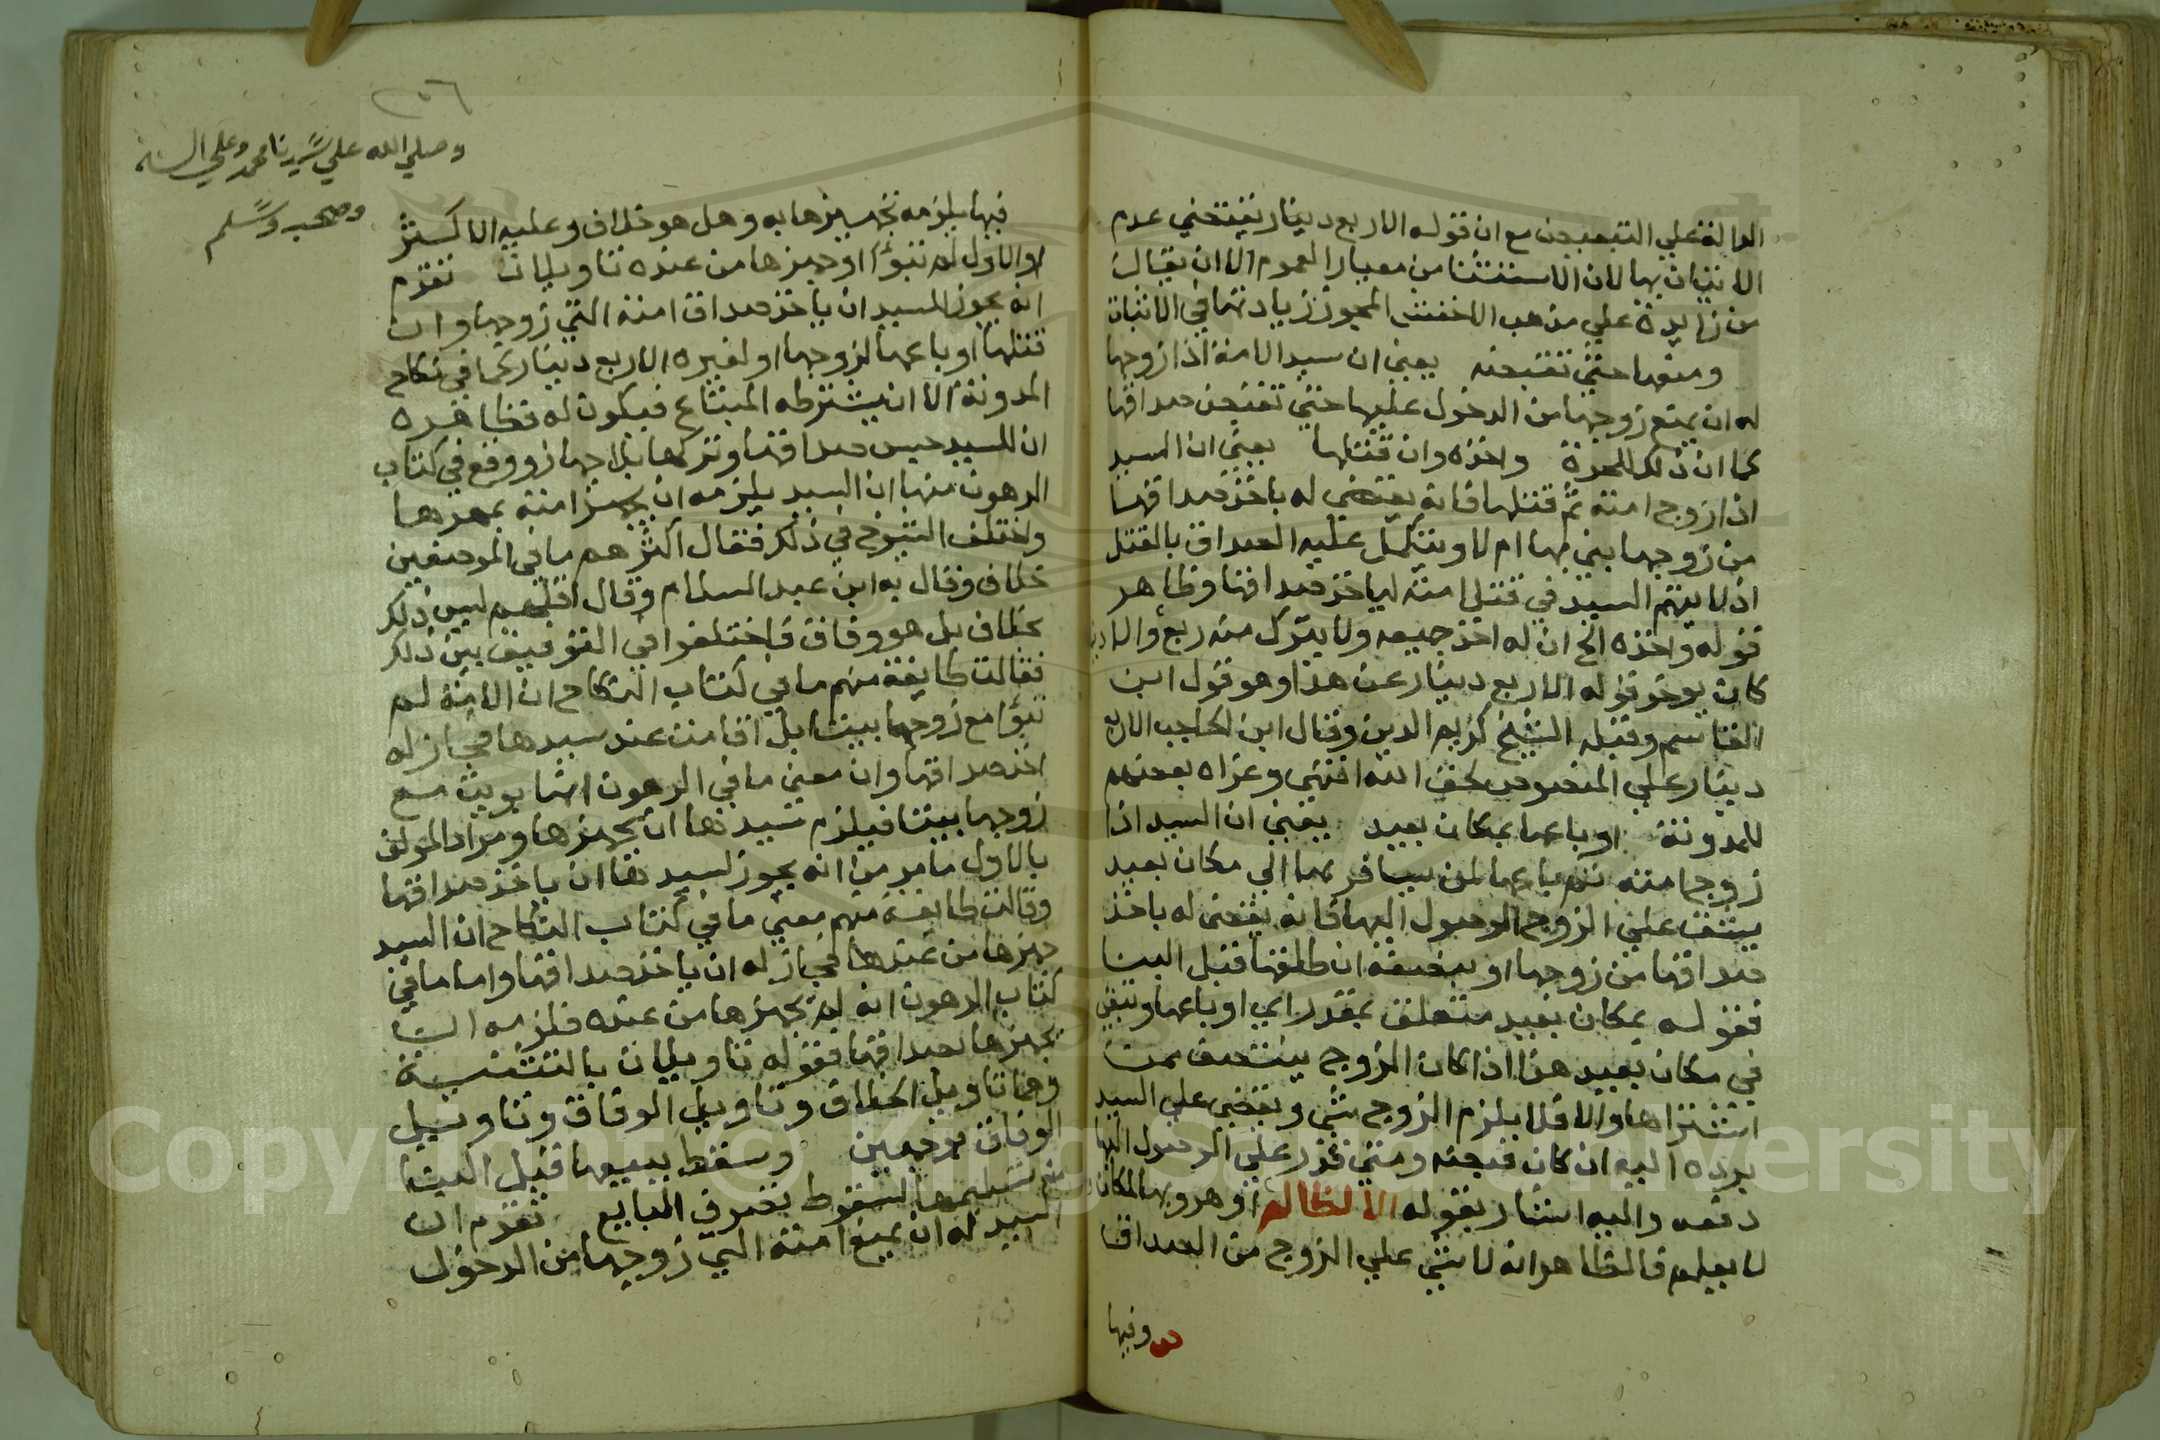 الدالة علي التبعيض مع ان قوله الا ربع دينار يقتضي عدم
الاتيان بها لان الاستثنا من معيار العموم الا ان يقال
من زايدة علي مذهب الاخفش المجوز زيادتها في الاثبات
ومنعها حتي تقبضه يعني ان سيد الامة اذا زوجها
له ان يمنع زوجها من الدخول عليها حتي تقبض صداقها
كما ان ذلك للحرة واخذه وان قتلها يعني ان السيد
اذا زوج امته ثم قتلها فانه يقضي له باخذ صداقها
من زوجها بني بها ام لا ويتكمل عليه الصداق بالقتل
اذ لا يتهم السيد في قتل امته لياخذ صداقها وظاهر
قوله واخذه الخ ان له اخذ جميعه ولا يترك منه ربع والا
كان يوخر قوله الا ربع دينار عن هذا وهو قول ابن
القاسم وقبله الشيخ كريم الدين وقال ابن الحاجب الا ربع
دينار علي المنصوص لحق الله انتهي وعزاه بعضهم
للمدونة او باعها بمكان بعيد يعني ان السيد اذا
زوج امته ثم باعها لمن يسافر بها الي مكان بعيد
يشق علي الزوج الوصول اليها فانه يقضي له باخذ
صداقها من زوجها او بنصفه ان طلقها قبل البنا
فقوله بمكان بعيد متعلق بمقدر اي او باعها وتبقي
في مكان بعيد هذا اذا كان الزوج ينتصف ممن
اشتراها والا فلا يلزم الزوج شي ويقضي علي السيد
برده اليه ان كان قبضه ومتي قدر علي الوصول اليها
دفعه واليه اشار بقوله الا لظالم او هروبها لمكان
لا يعلم فالظاهر انه لا شي علي الزوج من الصداق
ص وفيها
٢٥٦
وصلي الله علي سيدنا محمد وعلي اله
وصحبه وسلم
فيها يلزمه تجهيزها به وهل هو خلاف وعليه الاكثر
او الاول لم تبوا او جهزها من عنده تاويلان تقدم
انه يجوز للسيد ان ياخذ صداق امته التي زوجها وان
قتلها او باعها لزوجها او لغيره الا ربع دينار كما في نكاح
المدونة الا ان يشترطه المبتاع فيكون له فظاهره
ان للسيد حبس صداقها وتركها بلا جهاز ووقع في كتاب
الرهون منها ان السيد يلزمه ان يجهز امته بمهرها
واختلف الشيوخ في ذلك فقال اكثرهم ما في الموضعين
خلاف وقال به ابن عبد السلام وقال اقلهم ليس ذلك
بخلاف بل هو وفاق فاختلفوا في التوفيق بين ذلك
فقالت طايفة منهم ما في كتاب النكاح ان الامة لم
تبوا مع زوجها بيتا بل اقامت عند سيدها فجاز له
اخذ صداقها وان معني ما في الرهون انها بويت مع
زوجها بيتا فيلزم سيدها ان يجهزها ومراد المولف
بالاول ما مر من انه يجوز لسيدها ان ياخذ صداقها
وقالت طايفة منهم معني ما في كتاب النكاح ان السيد
جهزها من عنده فجاز له ان ياخذ صداقها واما ما في
كتاب الرهون انه لم يجهزها من عنده فلزمه ان
يجهزها بصداقها فقوله تاويلان بالتثنية
وهما تاويل الخلاف وتاويل الوفاق وتاويل
الوفاق بوجهين وسقط ببيعها قبل البنا
منع تسليمها لسقوط تصرف البايع تقدم ان
السيد له ان يمنع امته التي زوجها من الدخول
Copyright © King Saud University